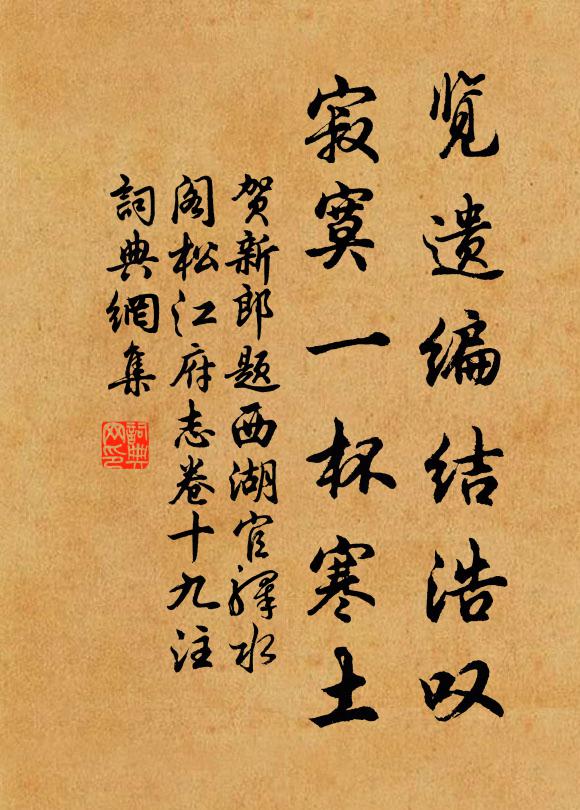 览遗编结浩叹
寂寞一杯寒土
贺新郎题西湖官驿水
阁松江府志卷十九注
詞典網集
詞典网印